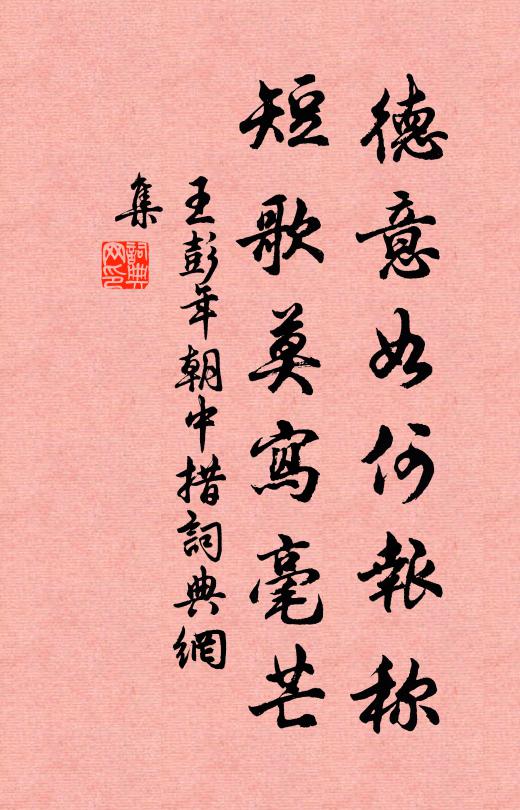 德意如何報称
短歌莫寫毫芒
王彭年朝中措詞典網
集
詞典網印